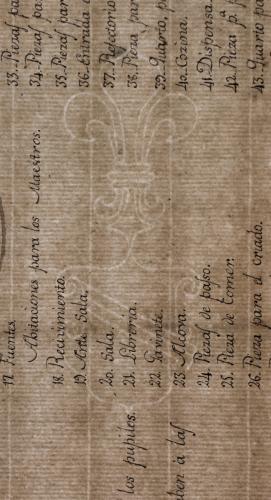 17. Fuentes.
Abitaciones para los Maestros.
18. Recivimiento.
19. Ante Sala.
20. Sala.
21. Libreria.
22. Gavinete.
23. Alcova.
24. Piezas de paso.
25. Pieza de Comer.
26. Pieza para el criado.
33. Piezas
34. Piezas
35. Piezas
36. Entrada
37. Refectorio
38. Pieza par
39. Quarto, p
40. Cozina.
41. Dispensa.
42. Pieza p.ª
43. Quarto pa
los pupiles.
ben a las